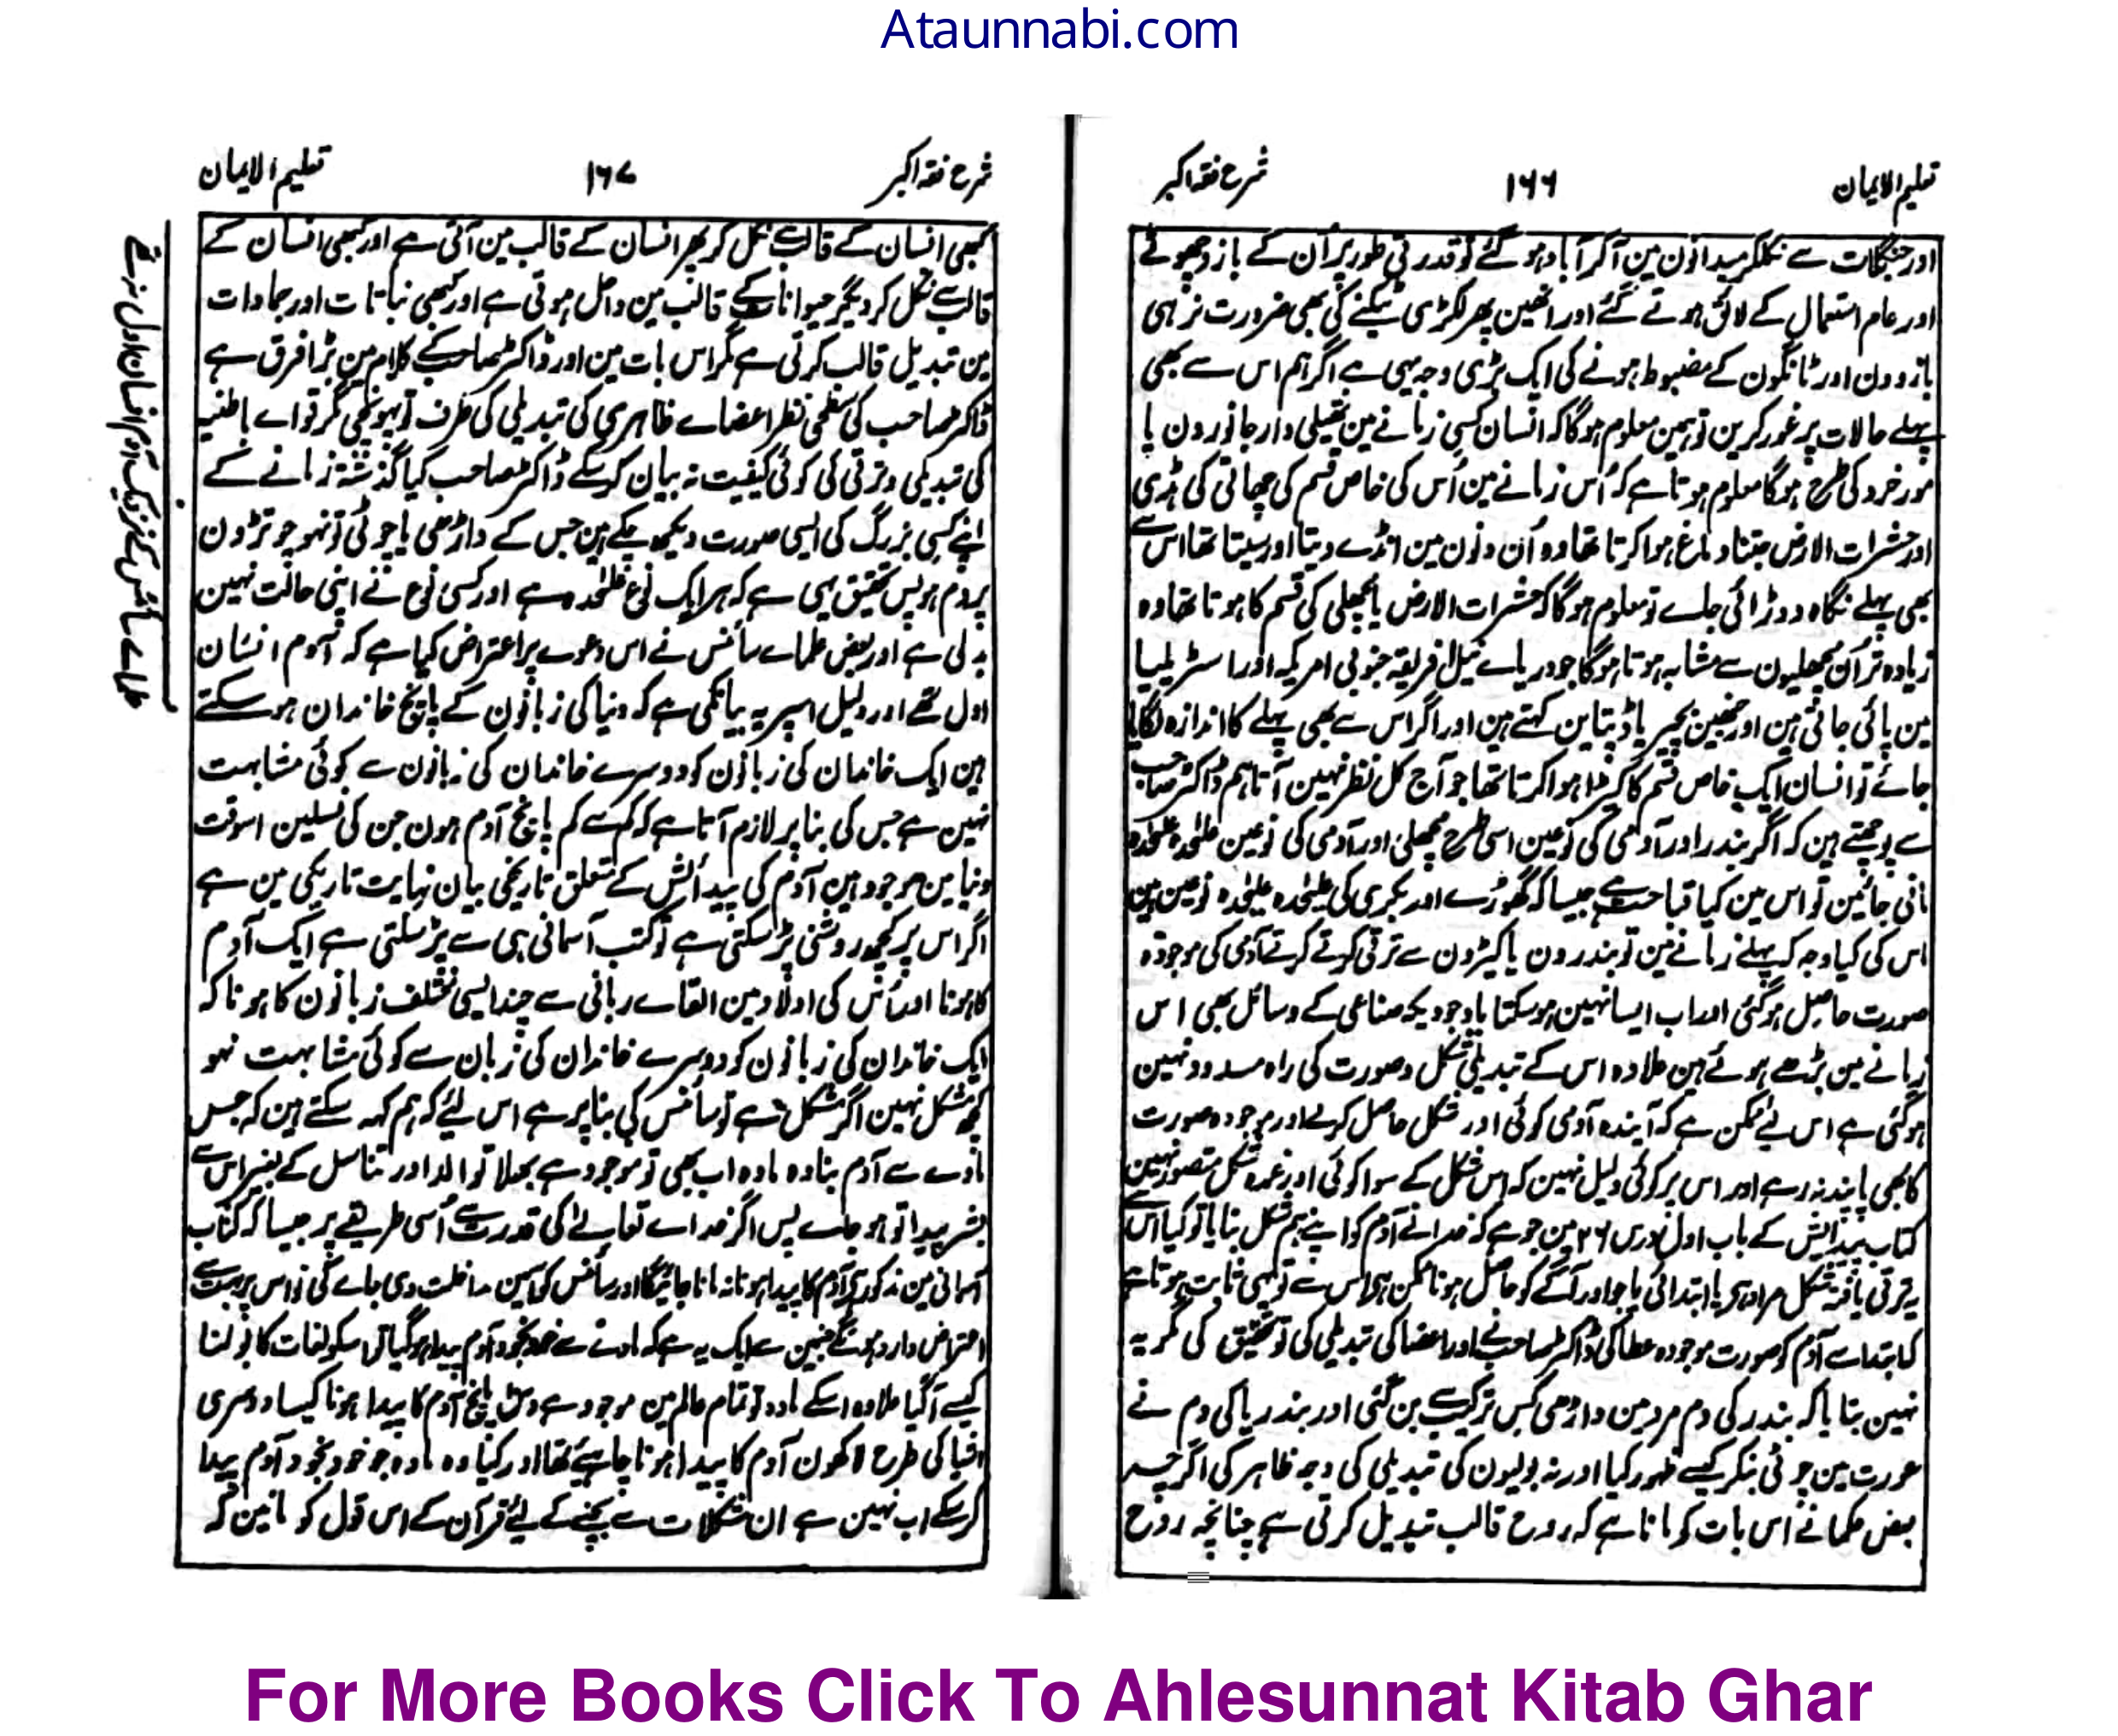 Ataunnabi.com
تعلیم الایمان ۱۶۶ شرح فقہ اکبر
اور جنگلات سے نکلکر میدانون مین آکر آباد ہو گئے تو قدرتی طور پر اُن کے بازو چھوٹے
اور عام استعمال کے لائق ہوتے گئے اور انھین پھر لکڑی ٹیکنے کی بھی ضرورت نرہی
بازوون اور ٹانگون کے مضبوط ہونے کی ایک بڑی وجہ یہی ہے اگر ہم اس سے بھی
پہلے حالات پر غور کرین تو ہمین معلوم ہوگا کہ انسان کسی زمانے مین تھیلی دار جانورون یا
مور خرد کی طرح ہوگا معلوم ہوتا ہے کہ اُس زمانے مین اُس کی خاص قسم کی چھاتی کی ہڈی
اور حشرات الارض جتنا دماغ ہوا کرتا تھا وہ اُن دنون مین انڈے دیتا اور سیتا تھا اس سے
بھی پہلے نگاہ دوڑائی جاے تو معلوم ہوگا کہ حشرات الارض یا مچھلی کی قسم کا ہوتا تھا وہ
زیادہ تر اُن مچھلیون سے مشابہ ہوتا ہوگا جو دریاے نیل افریقہ جنوبی امریکہ اور اسٹریلیا
مین پائی جاتی ہین اور جنھین کہتے ہین اور اگر اس سے بھی پہلے کا اندازہ لگایا
جائے تو انسان ایک خاص قسم کا کیڑا ہوا کرتا تھا جو آج کل نظر نہین آتا ہم ڈاکٹر صاحب
سے پوچھتے ہین کہ اگر بندر اور آدمی کی نوعین اسی طرح مچھلی اور آدمی کی نوعین علٰحدہ علٰحدہ
مانی جائین تو اس مین کیا قباحت ہے جیسا کہ گھوڑے اور بکری کی علیٰحدہ علیٰحدہ نوعین ہین
اس کی کیا وجہ کہ پہلے زمانے مین تو بندرون یا کیڑون سے ترقی کرتے کرتے آدمی کی موجودہ
صورت حاصل ہو گئی اور اب ایسا نہین ہو سکتا باوجودیکہ صناعی کے وسائل بھی اس
زمانے مین بڑھے ہوئے ہین علاوہ اس کے تبدیلی شکل و صورت کی راہ مسدود نہین
ہو گئی ہے اس لیے ممکن ہے کہ آیندہ آدمی کوئی اور شکل حاصل کرلے اور موجودہ صورت
کا بھی پابند نہ رہے اور اس پر کوئی دلیل نہین کہ اس شکل کے سوا کوئی اور عمدہ شکل متصور نہین
کتاب پیدایش کے باب اول درس ۲۶ مین جو ہے کہ خدا نے آدم کو اپنے ہم شکل بنایا تو کیا اس سے
یہ ترقی یافتہ شکل مراد ہے یا ابتدائی یا جو اور آگے کو حاصل ہونا ممکن ہے اس سے تو یہی ثابت ہوتا ہے
کہ ابتدا سے آدم کو صورت موجودہ عطا کی ڈاکٹر صاحب نے اور اعضا کی تبدیلی کی تو تحقیق کی مگر یہ
نہین بتایا کہ بندر کی دم مرد مین داڑھی کس ترکیب سے بن گئی اور بندریا کی دم نے
عورت مین چوٹی بنکر کیسے ظہور کیا اور نہ بولیون کی تبدیلی کی وجہ ظاہر کی اگرچہ
بعض حکما نے اس بات کو مانا ہے کہ روح قالب تبدیل کرتی ہے چنانچہ روح
شرح فقہ اکبر ۱۶۷ تعلیم الایمان
کبھی انسان کے قالب سے نکل کر پھر انسان کے قالب مین آتی ہے اور کبھی انسان کے
قالب سے نکل کر دیگر حیوانات کے قالب مین داخل ہوتی ہے اور کبھی نباتات اور جمادات
مین تبدیل قالب کرتی ہے مگر اس بات مین اور ڈاکٹر صاحب کے کلام مین بڑا فرق ہے
ڈاکٹر صاحب کی سطحی نظر اعضاے ظاہری کی تبدیلی کی طرف تو پہونچی مگر قواے باطنیہ
کی تبدیلی و ترقی کی کوئی کیفیت نہ بیان کرسکے ڈاکٹر صاحب کیا گذشتہ زمانے کے
اپنے کسی بزرگ کی ایسی صورت دیکھ چکے ہین جس کے داڑھی یا چوٹی تو نہو چوتڑون
پر دم ہو پس تحقیق یہی ہے کہ ہر ایک نوع علٰحدہ ہے اور کسی نوع نے اپنی حالت نہین
بدلی ہے اور بعض علماے سائنس نے اس دعوے پر اعتراض کیا ہے کہ آدم انسان
اول تھے اور دلیل اسپر یہ بیان کی ہے کہ دنیا کی زبانون کے پانچ خاندان ہو سکتے
ہین ایک خاندان کی زبانون کو دوسرے خاندان کی زبانون سے کوئی مشابہت
نہین ہے جس کی بنا پر لازم آتا ہے کہ کم سے کم پانچ آدم ہون جن کی نسلین اسوقت
دنیا مین موجود ہین آدم کی پیدائش کے متعلق تاریخی بیان نہایت تاریکی مین ہے
اگر اس پر کچھ روشنی پڑ سکتی ہے تو کتب آسمانی ہی سے پڑ سکتی ہے ایک آدم
کا ہونا اور اُس کی اولاد مین القاے ربانی سے چند ایسی مختلف زبانون کا ہونا کہ
ایک خاندان کی زبانون کو دوسرے خاندان کی زبان سے کوئی مشابہت نہو
کچھ مشکل نہین اگر مشکل ہے تو سائنس کی بنا پر ہے اس لیے کہ ہم کہہ سکتے ہین کہ جس
مادے سے آدم بنا وہ مادہ اب بھی تو موجود ہے بھلا توالد اور تناسل کے بغیر اس سے
بشر پیدا تو ہو جاے پس اگر خداے تعالےٰ کی قدرت سے اُسی طریقے پر جیسا کہ کتاب
آسمانی مین مذکور ہے آدم کا پیدا ہونا نہ مانا جائیگا اور سائنس کو اسمین مداخلت دی جاے گی تو اس پر بہت سے
اعتراض وارد ہونگے جنمین سے ایک یہ ہے کہ مادے سے خود بخود آدم پیدا ہو گیا تو اسکو لغات کا بولنا
کیسے آگیا علاوہ اسکے مادہ تو تمام عالم مین موجود ہے پانچ آدم کا پیدا ہونا کیسا دوسری
اشیا کی طرح لاکھون آدم کا پیدا ہونا چاہیئے تھا اور کیا وہ مادہ جو خود بخود آدم پیدا
کرسکے اب نہین ہے ان مشکلات سے بچنے کے لیے قرآن کے اس قول کو مانین کہ
علماے سائنس کے نزدیک آدم انسان اول نہ تھے
For More Books Click To Ahlesunnat Kitab Ghar